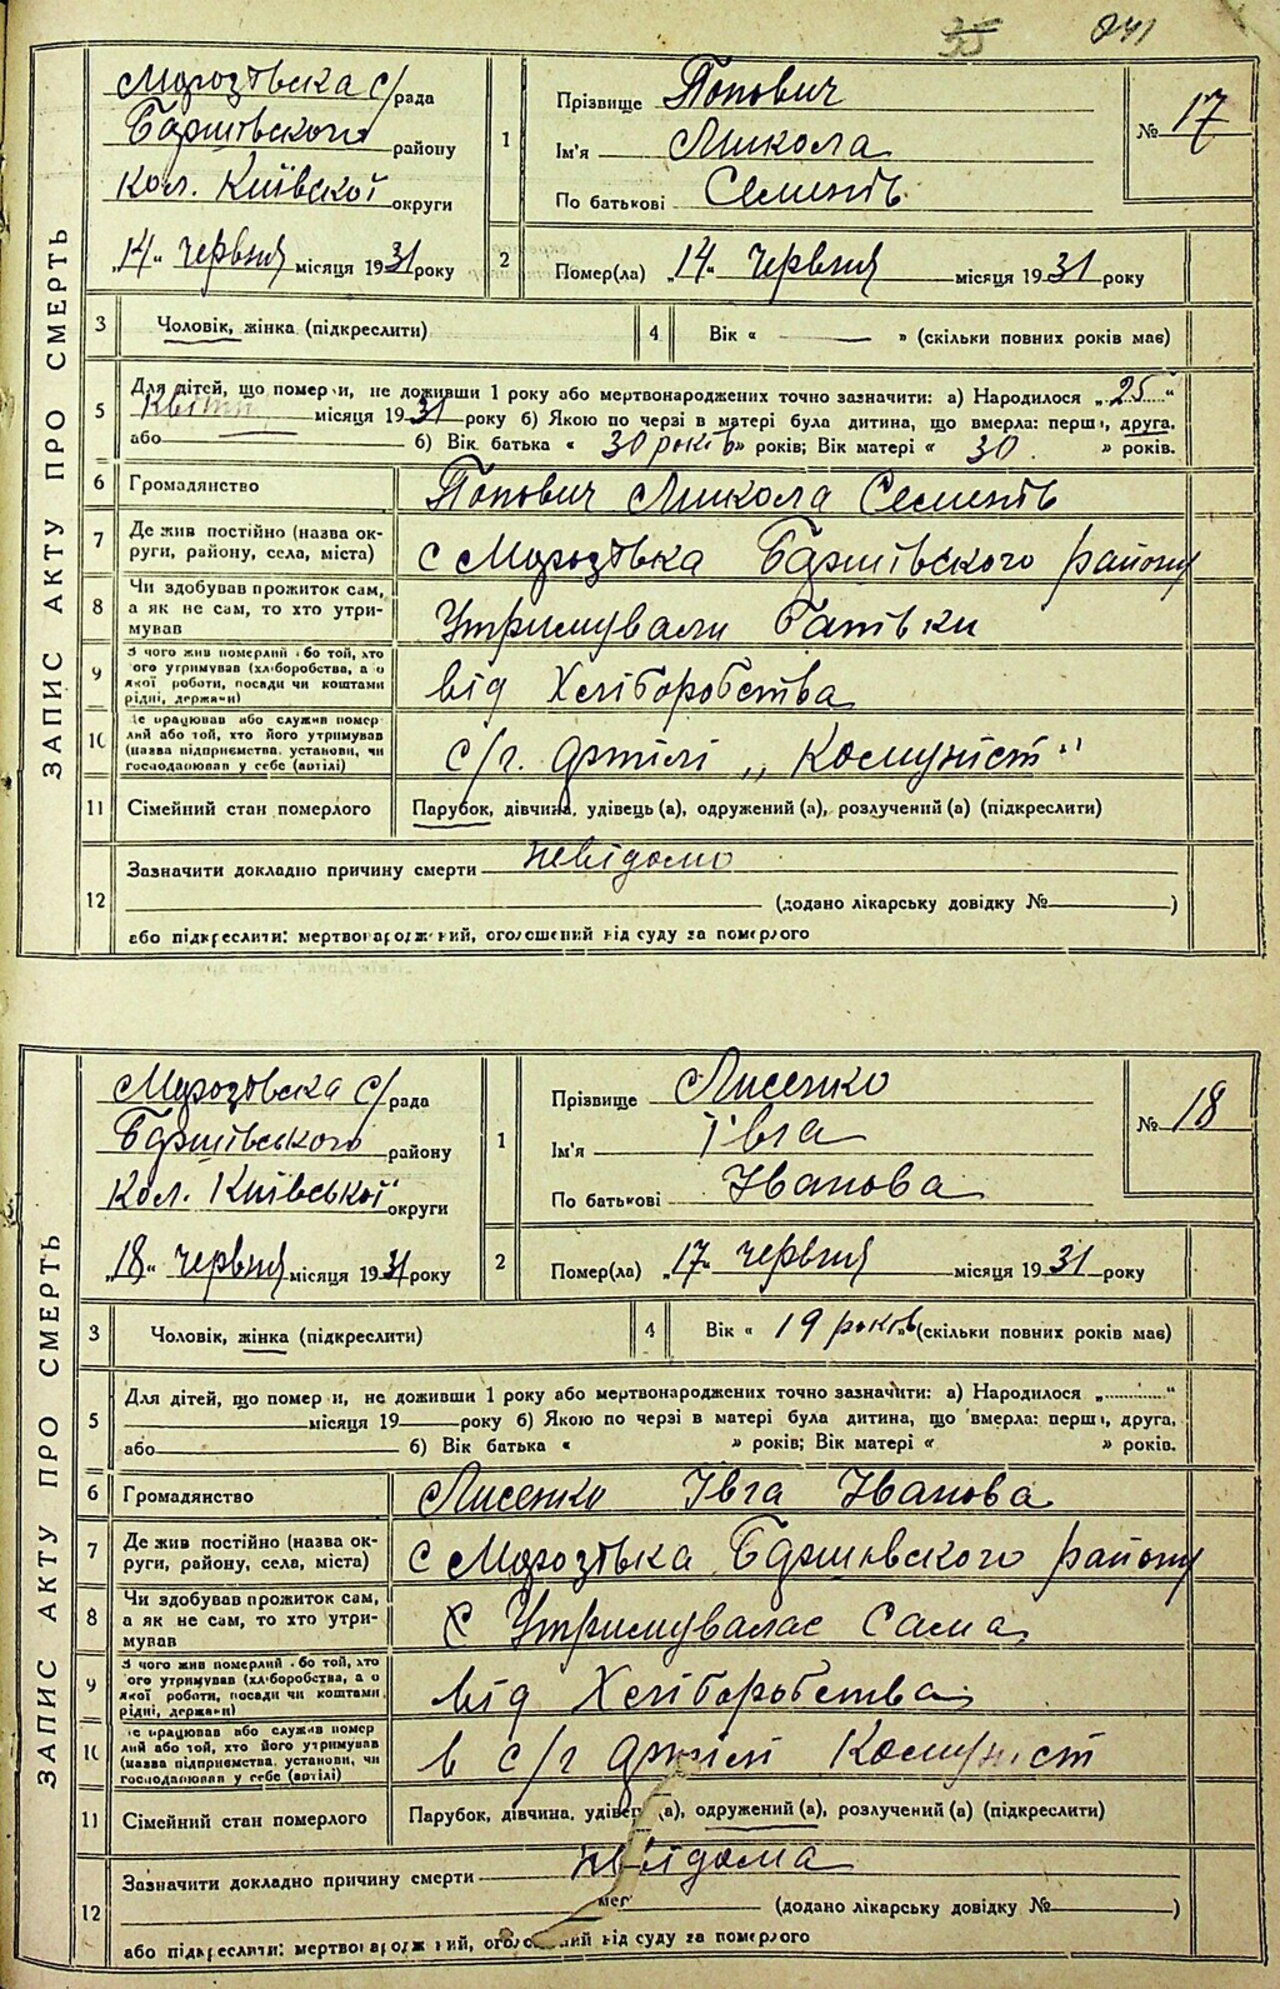 35 241
ЗАПИС АКТУ ПРО СМЕРТЬ
Морозівска с/рада
Баришівского району
кол. Київскої округи
„14“ червня місяця 1931 року
1 Прізвище Попович
Ім'я Микола
По батькові Семенів
№ 17
2 Помер(ла) „14“ червня місяця 1931 року
3 Чоловік, жінка (підкреслити)
4 Вік « — » (скільки повних років має)
5 Для дітей, що помер и, не доживши 1 року або мертвонароджених точно зазначити: а) Народилося „25“
місяця 1931 року б) Якою по черзі в матері була дитина, що вмерла: перш і, друга,
або б) Вік батька « 30 років » років; Вік матері « 30 » років.
6 Громадянство Попович Микола Семенів
7 Де жив постійно (назва ок-
руги, району, села, міста) с Морозівка Баришівского району
8 Чи здобував прожиток сам,
а як не сам, то хто утри-
мував Утримували Батьки
9 З чого жив померлий або той, хто
ого утримував (хліборобства, а о
якої роботи, посади чи коштами
рідні, держави) від Хліборобства
10 е працював або служив помер
лий або той, хто його утримував
(назва підприємства, установи, чи
господарював у себе (артілі) с/г. артілі „Комуніст“
11 Сімейний стан померлого Парубок, дівчина, удівець (а), одружений (а), розлучений (а) (підкреслити)
12 Зазначити докладно причину смерти невідомо
(додано лікарську довідку № )
або підкреслити: мертвонароджений, оголошений від суду за померлого
ЗАПИС АКТУ ПРО СМЕРТЬ
Морозівска с/рада
Баришівського району
Кол. Київської округи
„18“ червня місяця 1931 року
1 Прізвище Лисенко
Ім'я Івга
По батькові Іванова
№ 18
2 Помер(ла) „17“ червня місяця 1931 року
3 Чоловік, жінка (підкреслити)
4 Вік « 19 років » (скільки повних років має)
5 Для дітей, що помер и, не доживши 1 року або мертвонароджених точно зазначити: а) Народилося „ “
місяця 19 року б) Якою по черзі в матері була дитина, що вмерла: перш і, друга,
або б) Вік батька « » років; Вік матері « » років.
6 Громадянство Лисенко Івга Іванова
7 Де жив постійно (назва ок-
руги, району, села, міста) с Морозівка Баришівского району
8 Чи здобував прожиток сам,
а як не сам, то хто утри-
мував Утримувалас Сама
9 З чого жив померлий або той, хто
ого утримував (хліборобства, а о
якої роботи, посади чи коштами
рідні, держави) від Хліборобства
10 е працював або служив помер
лий або той, хто його утримував
(назва підприємства, установи, чи
господарював у себе (артілі) в с/г артілі Комуніст
11 Сімейний стан померлого Парубок, дівчина, удівець (а), одружений (а), розлучений (а) (підкреслити)
12 Зазначити докладно причину смерти невідома
(додано лікарську довідку № )
або підкреслити: мертвонароджений, оголошений від суду за померлого